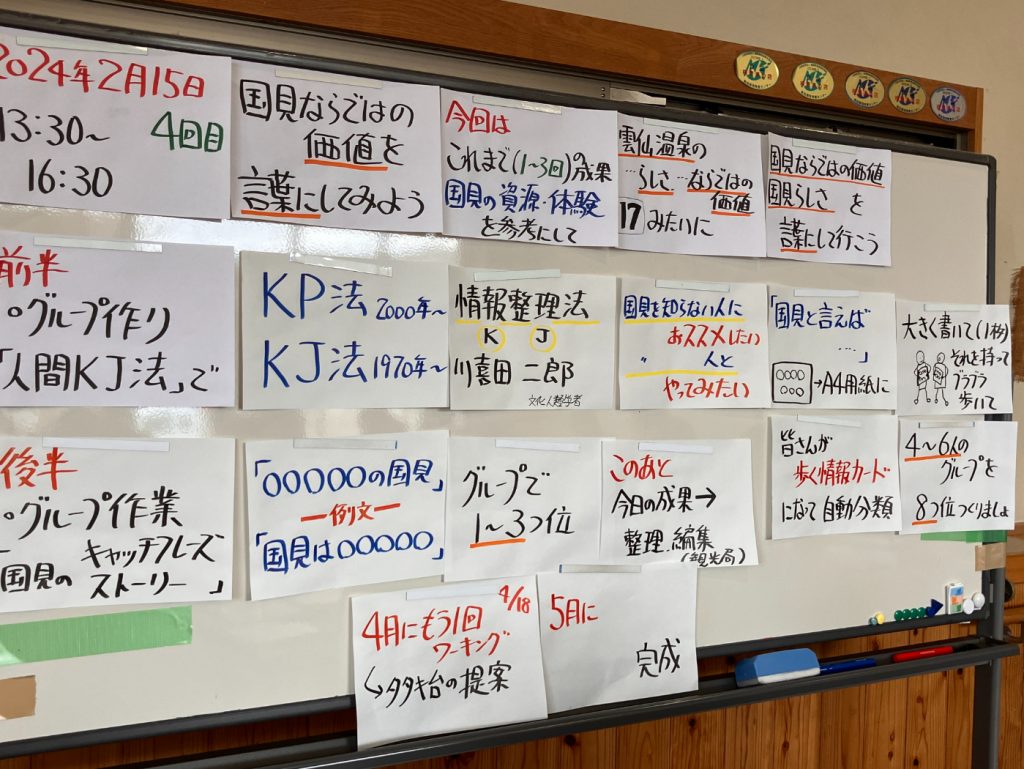 2024年2月15日
13:30～
4回目
16:30
国見ならではの
価値を
言葉にしてみよう
今回は
これまで(1～3回)の成果
国見の資源・体験
を参考にして
雲仙温泉の
…らしさ…ならではの
価値
17 みたいに
国見ならではの価値
国見らしさ を
言葉にして行こう
前半
・グループ作り
「人間KJ法」で
KP法 2000年～
KJ法 1970年～
情報整理法
K J
川喜田 二郎
文化人類学者
国見を知らない人に
おススメしたい
〃 人と
やってみたい
「国見と言えば
…」
→A4用紙に
大きく書いて(1枚)
それを持って
ブラブラ
歩いて
後半
・グループ作業
「国見の キャッチフレーズ
ストーリー」
「○○○○○の国見」
ー例文ー
「国見は○○○○○」
グループで
1～3つ位
このあと
今日の成果→
整理.編集
(観光局)
皆さんが
歩く情報カード
になって自動分類
4～6人の
グループを
8つ位つくりましょ
4月にもう1回 4/18
ワーキング
↳タタキ台の提案
5月に
完成